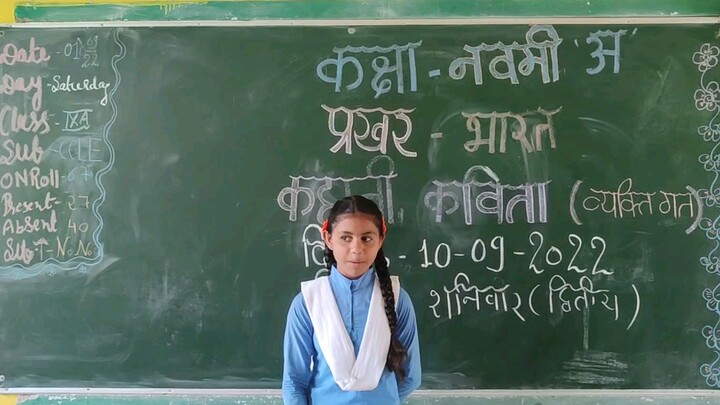 Date - 01 9/22
Day - Saturday
Class - IXA
Sub - CCLE
ON Roll - 67
Present - 27
Absent 40
Sub↑ - N. No
कक्षा - नवमी 'अ'
प्रखर - भारत
कहानी, कविता (व्यक्तिगत)
- 10-09-2022
शनिवार (द्वितीय)